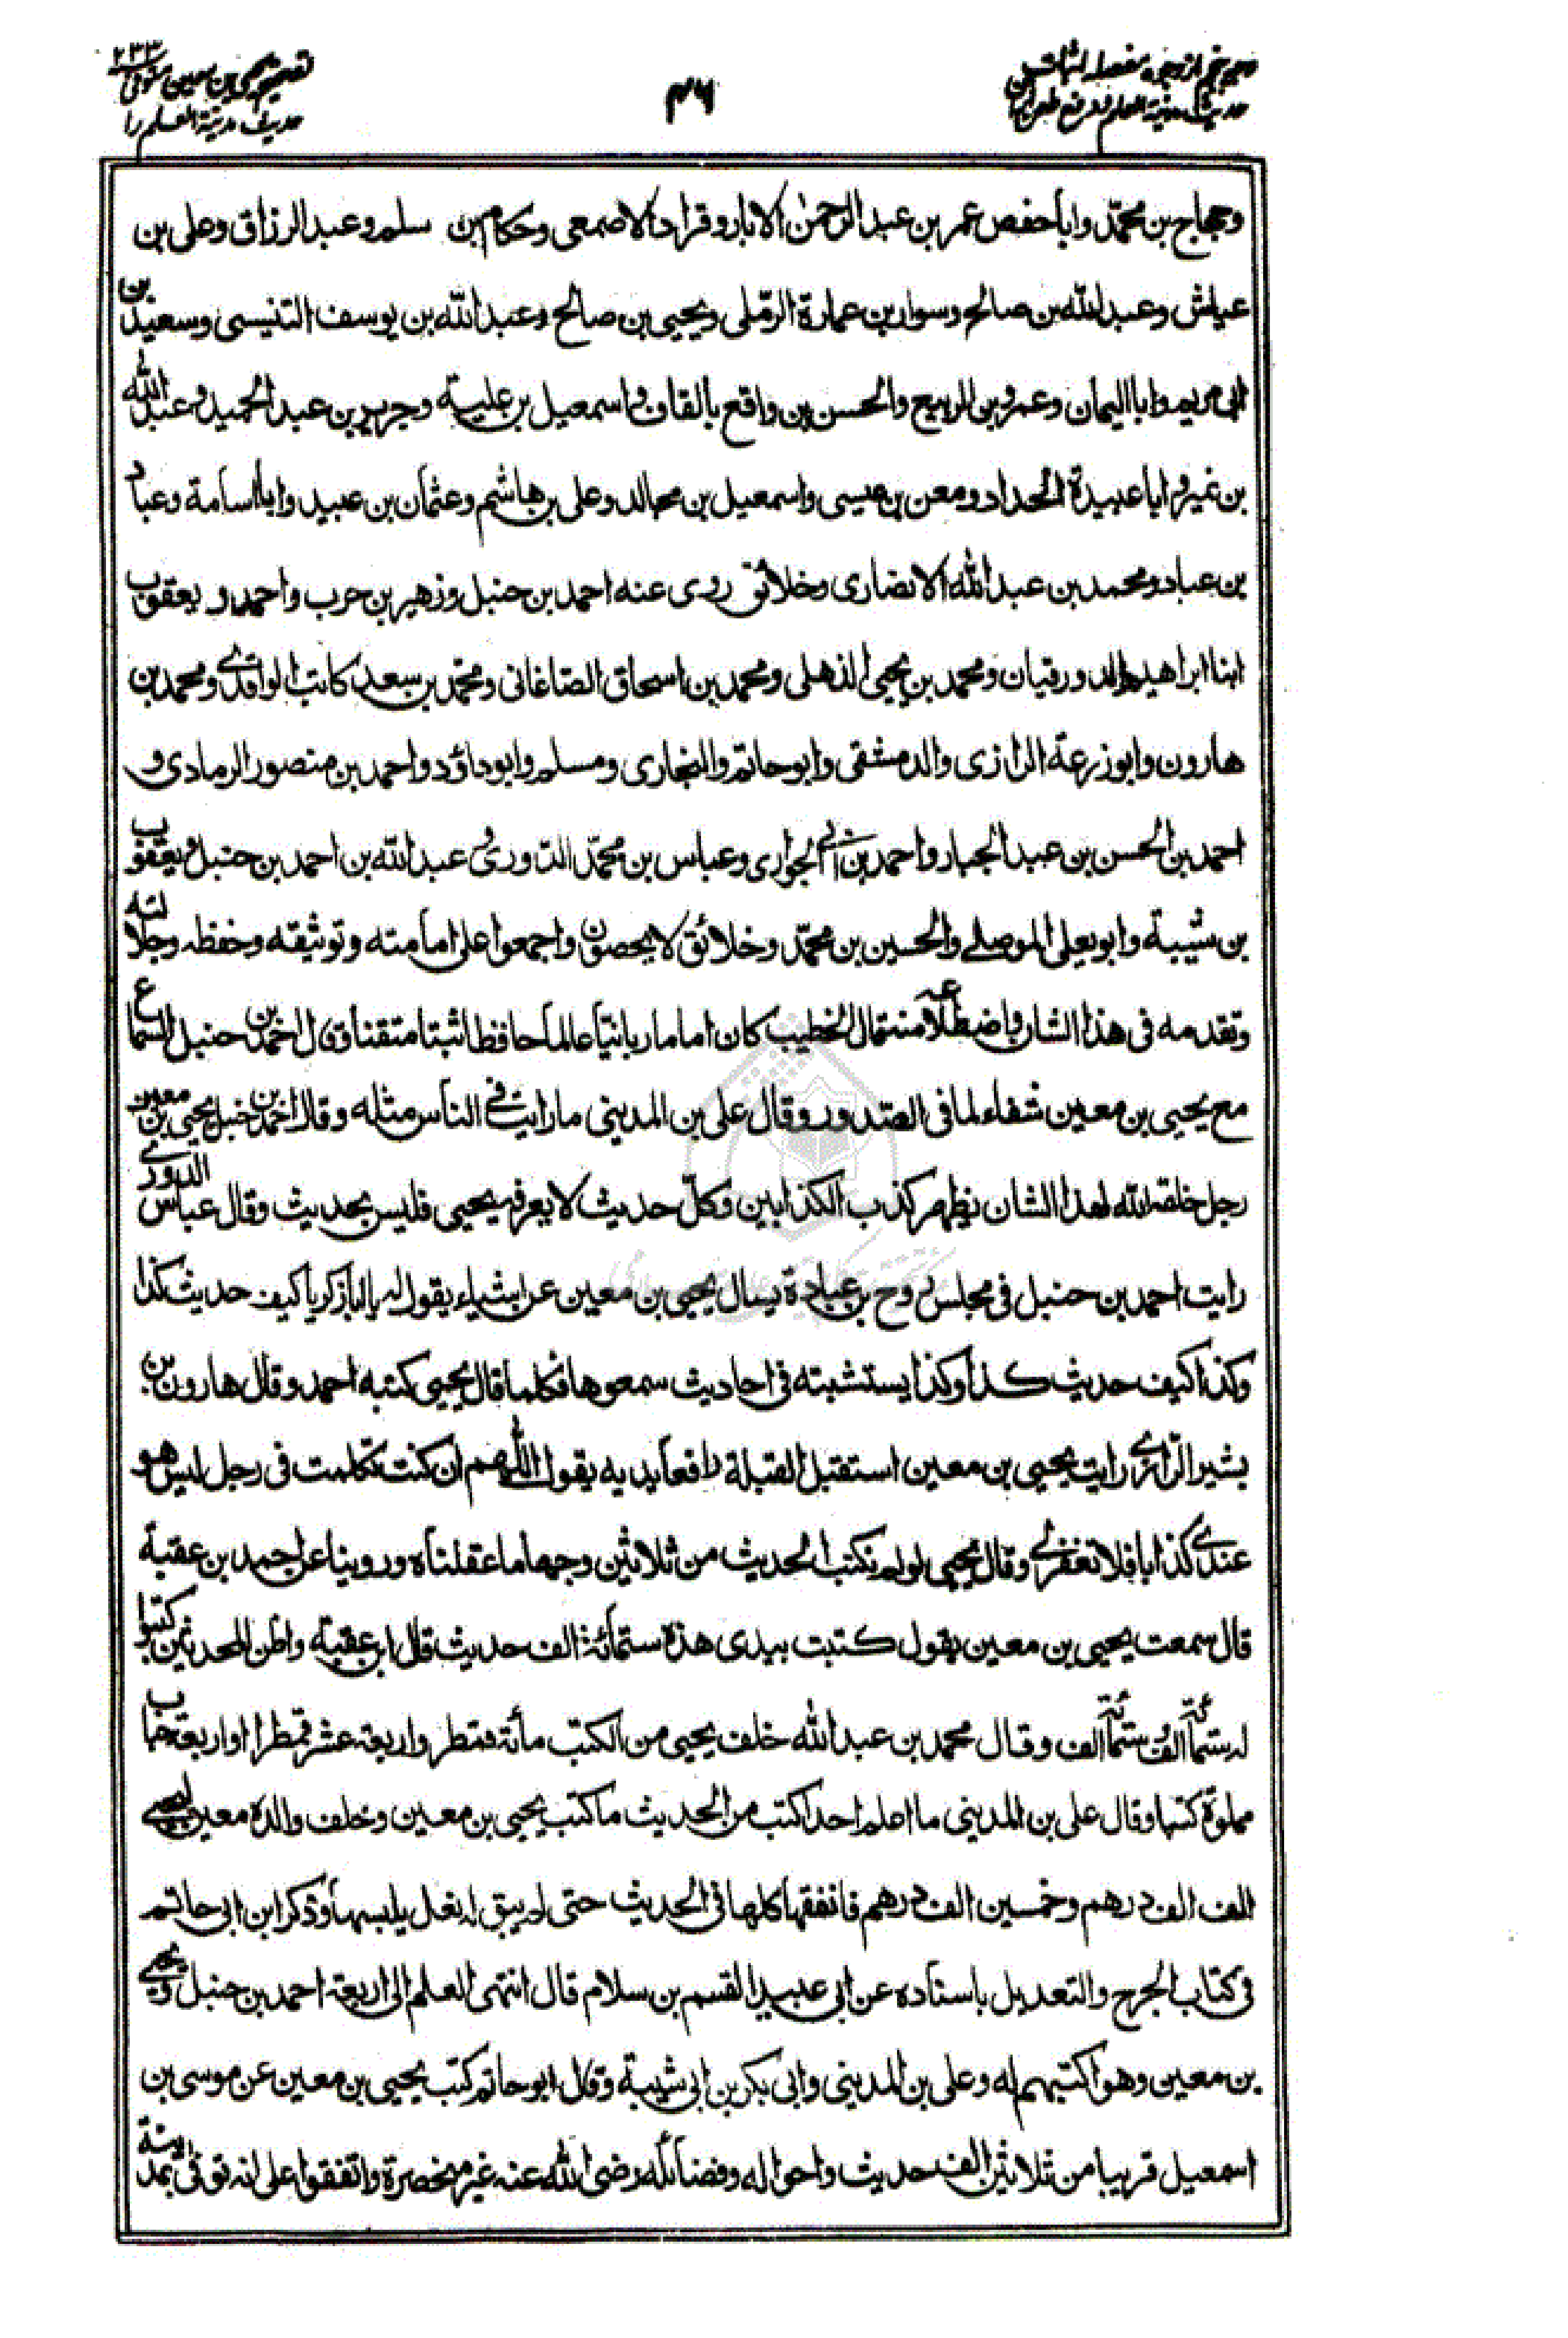 وجه پنجم از وجوه مفصله اثبات
حديث مدينة العلم و رفع طعن
۴۶
تصحيح يحيى بن معين متوفى ۲۳۳
حديث مدينة العلم را
وحجاج بن محمّد وابا حفص عمر بن عبد الرحمن الابار وقراد الاصمعى وحكام بن سلم وعبد الرزاق وعلى بن
عياش وعبد الله بن صالح وسوار بن عمارة الرملى ويحيى بن صالح وعبد الله بن يوسف التنيسى وسعيد بن
ابى مريم وابا اليمان وعمرو بن الربيع والحسن بن واقع بالقاف واسمعيل بن علية وجرير بن عبد الحميد وعبد الله
بن نمير وابا عبيدة الحداد ومعن بن عيسى واسمعيل بن مجالد وعلى بن هاشم وعثمان بن عبيد وابا اسامة وعباد
بن عباد ومحمد بن عبد الله الانصارى وخلائق روى عنه احمد بن حنبل وزهير بن حرب واحمد و يعقوب
ابنا ابراهيم الدورقيان ومحمد بن يحيى الذهلى ومحمد بن اسحاق الصاغانى ومحمّد بن سعد كاتب الواقدے ومحمد بن
هارون وابو زرعة الرازى والدمشقى وابو حاتم والبخارى ومسلم وابو داؤد واحمد بن منصور الرمادى و
احمد بن الحسن بن عبد الجبار واحمد بن ابى الحوارى وعباس بن محمّد الدّورى و عبد الله بن احمد بن حنبل ويعقوب
بن شيبة وابو يعلى الموصلے والحسين بن محمّد وخلائق لا يحصون واجمعوا على امامته وتوثيقه وحفظه وجلالته
وتقدمه فى هذا الشان واضطلاعه منه قال الخطيب كان اماما ربانيّا عالماً حافظا ثبتا متقنا وقال احمد بن حنبل السماع
مع يحيى بن معين شفاء لما فى الصّدور وقال على بن المدينى ما رايت فى الناس مثله وقال احمد بن حنبل يحيى بن معين
رجل خلقه الله لهذا الشان يظهر كذب الكذابين وكلّ حديث لا يعرفه يحيى فليس بحديث وقال عباس الدورے
رايت احمد بن حنبل فى مجلس روح بن عبادة يسال يحيى بن معين عن اشياء يقول له يا ابا زكريا كيف حديث كذا
وكذا كيف حديث كذا وكذا يستثبته فى احاديث سمعوها فكلما قال يحيى كتبه احمد وقال هارون بن
بشير الرّازے رايت يحيى بن معين استقبل القبلة رافعا يديه يقول اللّهم ان كنت تكلمت فى رجل ليس هو
عندے كذابا فلا تغفر لى وقال يحيى لو لم نكتب الحديث من ثلاثين وجها ما عقلناه وروينا عن احمد بن عقبة
قال سمعت يحيى بن معين يقول كتبت بيدى هذه ستمائة الف حديث قال ابن عقبة واظن المحدثين كتبوا
له ستمائة الف وستمائة الف وقال محمد بن عبد الله خلف يحيى من الكتب مائة قمطر واربعة عشر قمطرا واربعة حباب
مملوة كتبا وقال على بن المدينى ما اعلم احدا كتب من الحديث ما كتب يحيى بن معين وخلف والده معين ليحيى
الف الف درهم وخمسين الف درهم فانفقها كلها فى الحديث حتى لم يبق له نعل يلبسها وذكر ابن ابى حاتم
فى كتاب الجرح والتعديل باسناده عن ابى عبيد القسم بن سلام قال انتهى العلم الى اربعة احمد بن حنبل ويحيى
بن معين وهو اكتبهم له وعلى بن المدينى وابى بكر بن ابى شيبة وقال ابو حاتم كتب يحيى بن معين عن موسى بن
اسمعيل قريبا من ثلاثين الف حديث واحواله وفضائله رضى الله عنه غير منحصرة واتفقوا على انه توفى بمدينة